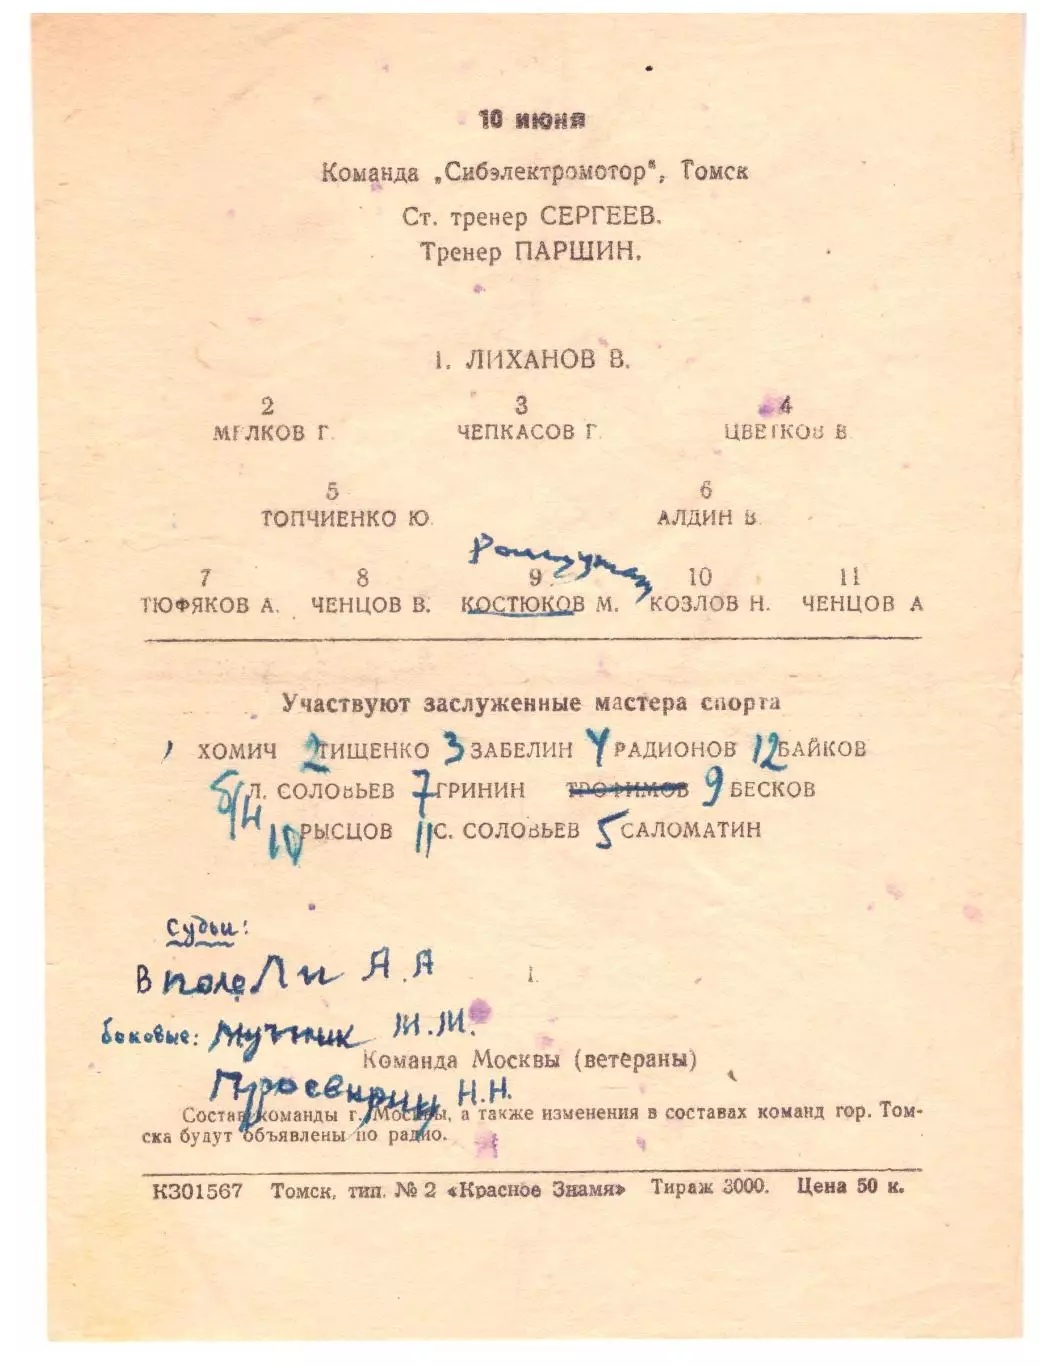 10 июня
Команда „Сибэлектромотор", Томск
Ст. тренер СЕРГЕЕВ.
Тренер ПАРШИН.
1. ЛИХАНОВ В.
2 3 4
МЕЛКОВ Г. ЧЕПКАСОВ Г. ЦВЕТКОВ В.
5 6
ТОПЧИЕНКО Ю. АЛДИН В.
7 8 9 10 11
ТЮФЯКОВ А. ЧЕНЦОВ В. КОСТЮКОВ М. КОЗЛОВ Н. ЧЕНЦОВ А
Участвуют заслуженные мастера спорта
1 ХОМИЧ 2 ТИЩЕНКО 3 ЗАБЕЛИН 4 РАДИОНОВ 12 БАЙКОВ
Л. СОЛОВЬЕВ 7 ГРИНИН ТРОФИМОВ 9 БЕСКОВ
10 РЫСЦОВ 11 С. СОЛОВЬЕВ 5 САЛОМАТИН
Судьи:
В поле Ли А.А
1.
боковые: Мучник М.М.
Команда Москвы (ветераны)
Просвирин Н.Н.
Состав команды г. Москвы, а также изменения в составах команд гор. Том-
ска будут объявлены по радио.
К301567 Томск, тип. № 2 «Красное Знамя» Тираж 3000. Цена 50 к.